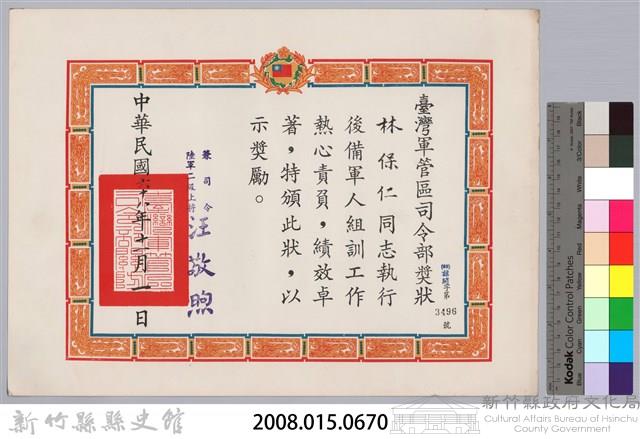 臺灣軍管區司令部獎狀
謨昭字第
3496
號
林保仁同志執行
後備軍人組訓工作
熱心責負，績效卓
著，特頒此狀，以
示獎勵。
兼司令
陸軍二級上將
汪敬煦
中華民國六十八年十一月一日
Black
3/Color
White
Magenta
Red
Yellow
Green
Cyan
Blue
Kodak Color Control Patches
新竹縣縣史館
2008.015.0670
新竹縣政府文化局
Cultural Affairs Bureau of Hsinchu
County Government